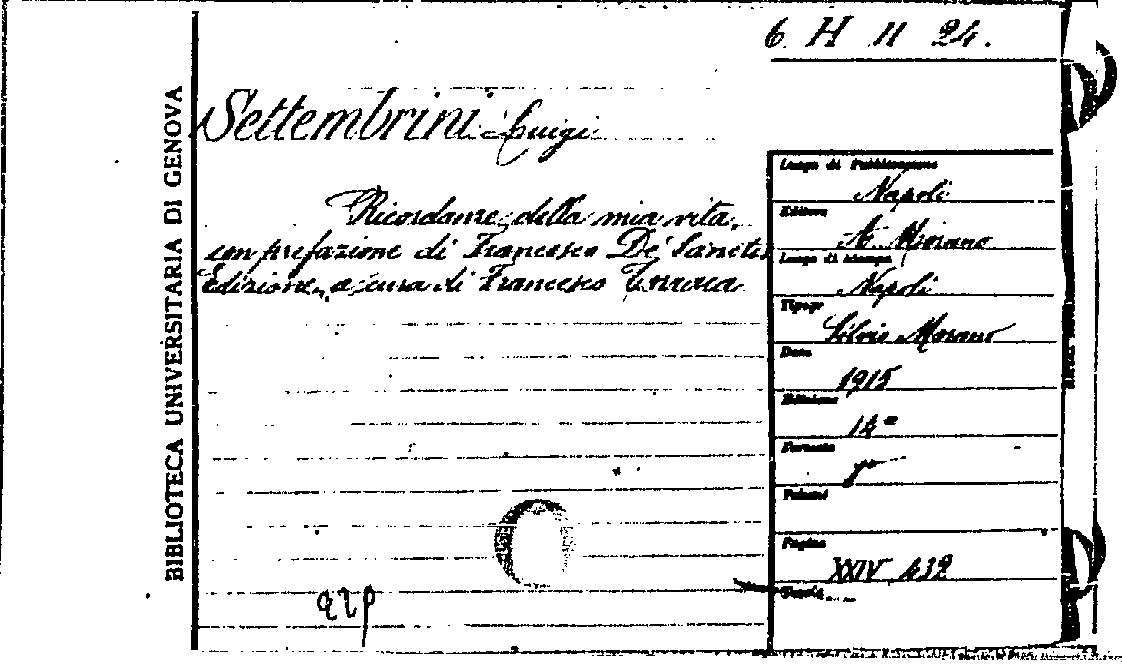 6 H II 24.
BIBLIOTECA UNIVERSITARIA DI GENOVA
Settembrini Luigi
Ricordanze della mia vita,
con prefazione di Francesco De Sanctis
Edizione a cura di Francesco Torraca
Luogo di Pubblicazione
Napoli
Editore
A. Morano
Luogo di stampa
Napoli
Tipogr
Silvio Morano
Data
1915
Edizione
14ª
Formato
8°
Volumi
Pagine
XXIV, 439